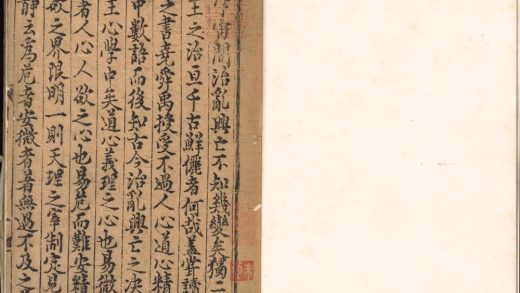 宙間治亂興亡不知幾變矣獨二
王之治亘千古鮮儷者何哉盖甞讀
之書堯舜禹授受不過人心道心精
中數語而後知古今治亂興亡之决
王心學中矣道心義理之心也易微
者人心人欲之心也易危而難安精
欲之界限明一則天理之宰制定見
靜云爲危者安微者著無過不及之